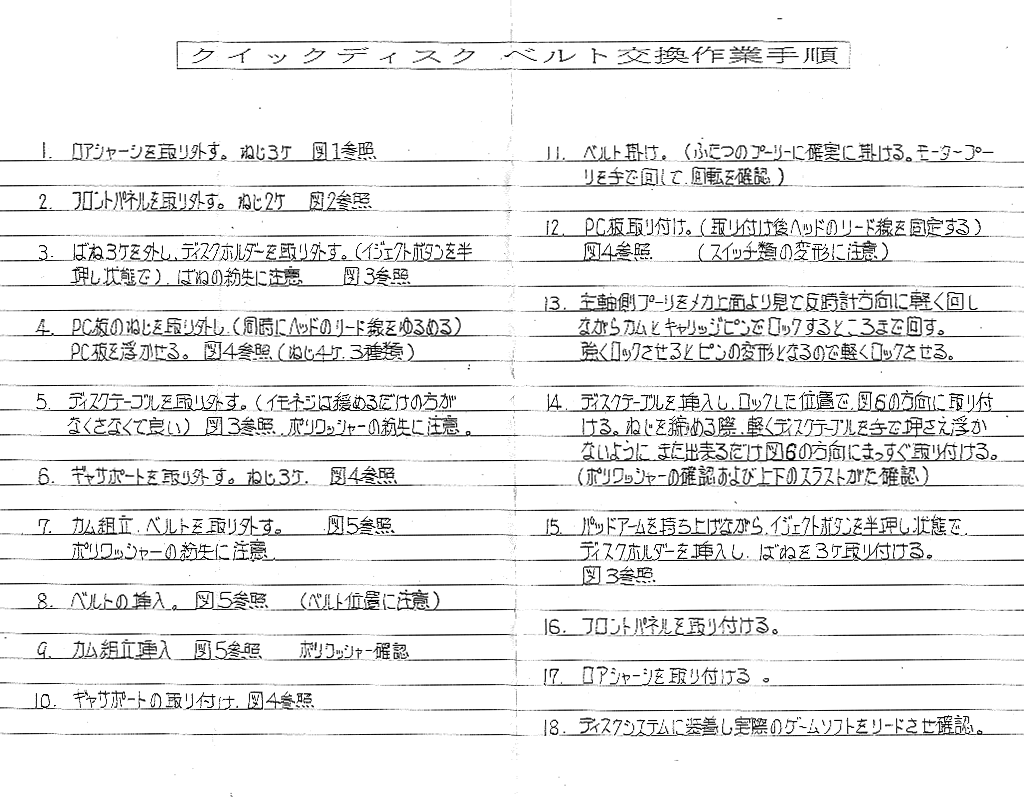 クイックディスク ベルト交換作業手順
1. ロアシャーシを取り外す。ねじ3ケ 図1参照
2. フロントパネルを取り外す。ねじ2ケ 図2参照
3. ばね3ケを外し、ディスクホルダーを取り外す。(イジェクトボタンを半
押し状態で)、ばねの紛失に注意 図3参照
4. PC板のねじを取り外し、(同時にヘッドのリード線をゆるめる)
PC板を浮かせる。図4参照(ねじ4ケ、3種類)
5. ディスクテーブルを取り外す。(イモネジは緩めるだけの方が
なくさなくて良い) 図3参照、ポリワッシャーの紛失に注意。
6. ギャサポートを取り外す。ねじ3ケ. 図4参照
7. カム組立、ベルトを取り外す。 図5参照
ポリワッシャーの紛失に注意、
8. ベルトの挿入。図5参照 (ベルト位置に注意)
9. カム組立挿入 図5参照 ポリワッシャー確認
10. ギャサポートの取り付け、図4参照
11. ベルト掛け。(ふたつのプーリーに確実に掛ける。モータープー
リを手で回して、回転を確認)
12. PC板取り付け。(取り付け後ヘッドのリード線を固定する)
図4参照 (スイッチ類の変形に注意)
13. 主軸側プーリをメカ上面より見て反時計方向に軽く回し
ながらカムとキャリッジピンでロックするところまで回す。
強くロックさせるとピンの変形となるので軽くロックさせる。
14. ディスクテーブルを挿入し、ロックした位置で、図6の方向に取り付
ける。ねじを締める際、軽くディスクテーブルを手で押さえ浮か
ないように、また出来るだけ図6の方向にまっすぐ取り付ける。
(ポリワッシャーの確認および上下のスラストがた確認)
15. パッドアームを持ち上げながら、イジェクトボタンを半押し状態で、
ディスクホルダーを挿入し、ばねを3ケ取り付ける。
図3参照
16. フロントパネルを取り付ける。
17. ロアシャーシを取り付ける。
18. ディスクシステムに装着し実際のゲームソフトをリードさせ確認。